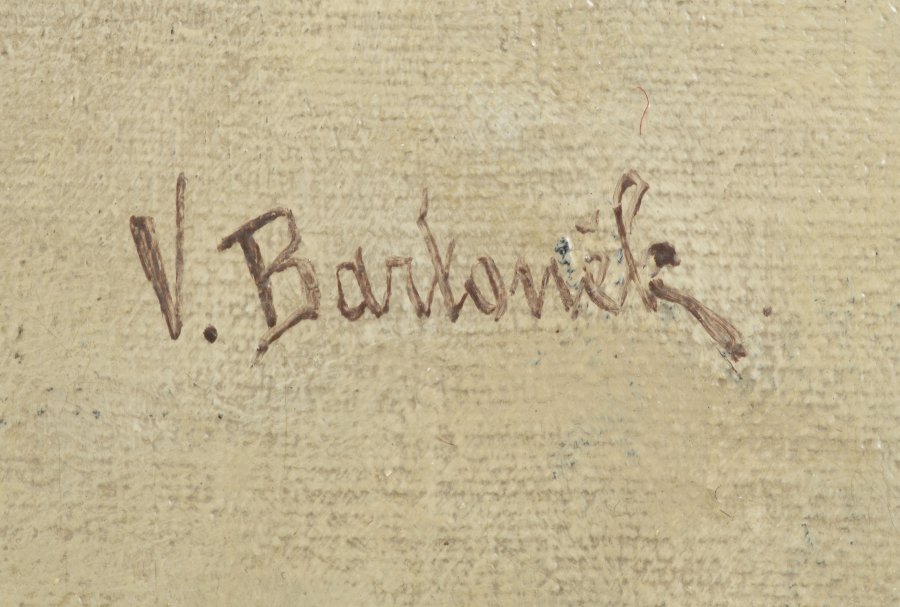 V. Bartoněk.